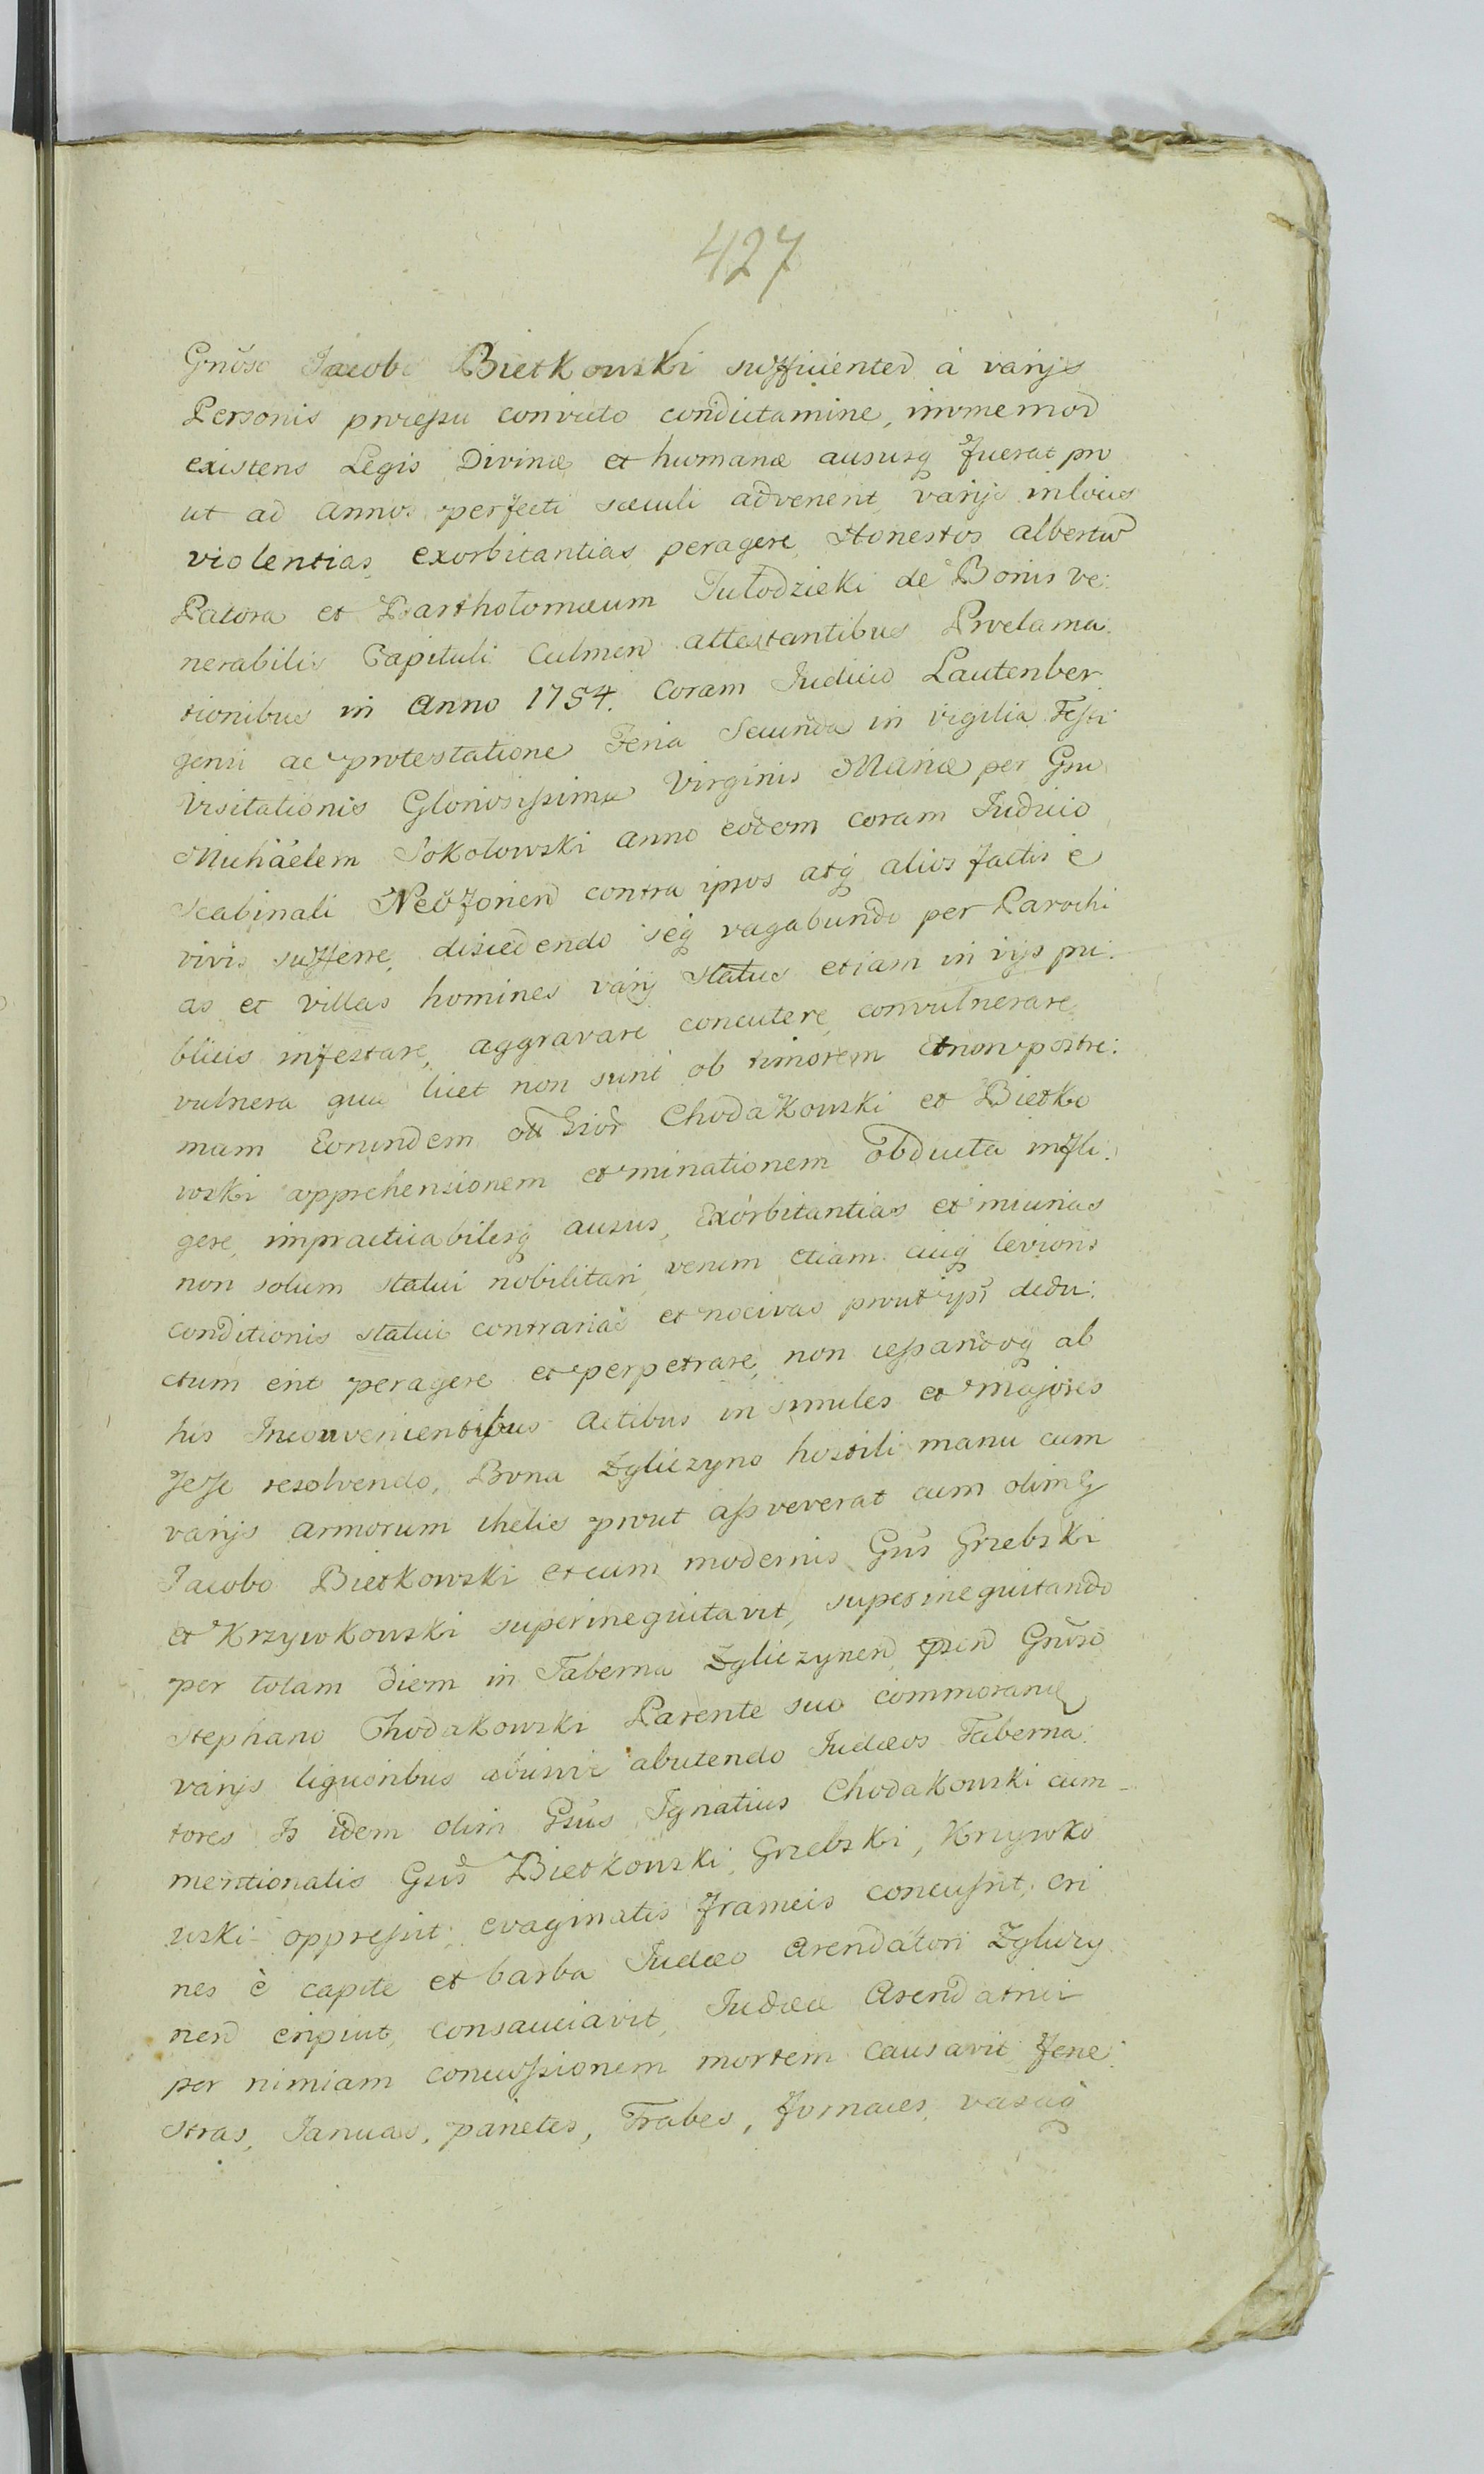 427
Gnŏso Jacobo Bietkowski sufficienter à varijs
Personis processu convicto condictamine, immemor
existens Legis Divinæ et humanæ aususq fuerat pro
ut ad annos perfecti sæculi advenerit, varijs in locis
violentias, exorbitantias peragere, Honestos albertum
Patora et Bartholomæum Tułodzieki de Bonis ve:
nerabilis Capituli Culmen attestantibus Proclama:
tionibus in Anno 1754. Coram Judicio Lautenber
gensi ac protestatione Feria Secunda in vigilia Festi
Visitationis Gloriosissimæ Virginis Mariæ per Gnu
Michäelem Sokołowski anno eodem coram Judicio
Scabinali Neoforien contra ipsos atq alios factis è
vivis sufferre, discedendo seq vagabundo per Parochi
as et villas homines varij status etiam in vijs pu:
blicis infestare, aggravare concutere, convulnerare,
vulnera quæ licet non sunt ob timorem et non postre:
mam Eorundem Chodakowski et Bietko
wski apprehensionem et minationem obducta infli:
gere, impracticabilesq ausus, Exorbitantias et iniurias
non solum statui nobilitari, verum etiam cuiq levioris
conditionis statui contrarias et nocivas prout ipsi dedu:
ctum erit peragere et perpetrare, non cessandoq ab
his Inconvenientibus Actibus in similes et majores
sese resolvendo, Bona Zgliczyno hostili manu cum
varijs armorum thelis prout asseverat cum olim G
Jacobo Bietkowski et cum modernis Gnis Grzebski
et Krzywkowski superinequitavit, superinequitando
per totam Diem in Taberna Zgliczynen Gnŏso
Stephano Chodakowski Parente suo commorante
varijs liquoribus abusive abutendo Judæos Taberna:
tores Is idem olim Gnus Ignatius Chodakowski cum
mentionatis Gnis Bietkowski, Grzebski, Krzywko
wski oppressit, evaginatis frameis concussit, cri
nes è capite et barba Judæo Arendatori Zgliczy
nen eripiut, consauciavit, Judææ Arendatrici
per nimiam concussionem mortem causavit, Fene:
stras, Januas, parietes, Trabes, fornaces, vasaq